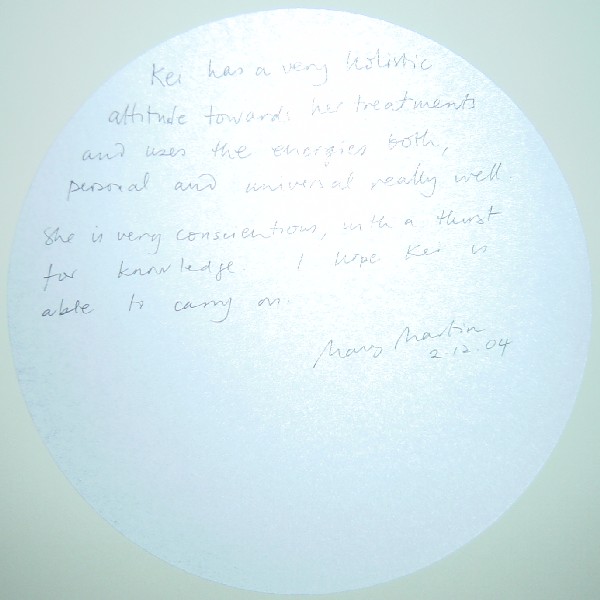 Kei has a very holistic
attitude towards her treatments
and uses the energies both,
personal and universal really well
She is very conscientious, with a thirst
for knowledge. I hope Kei is
able to carry on.
Mary Martin
2.12.04